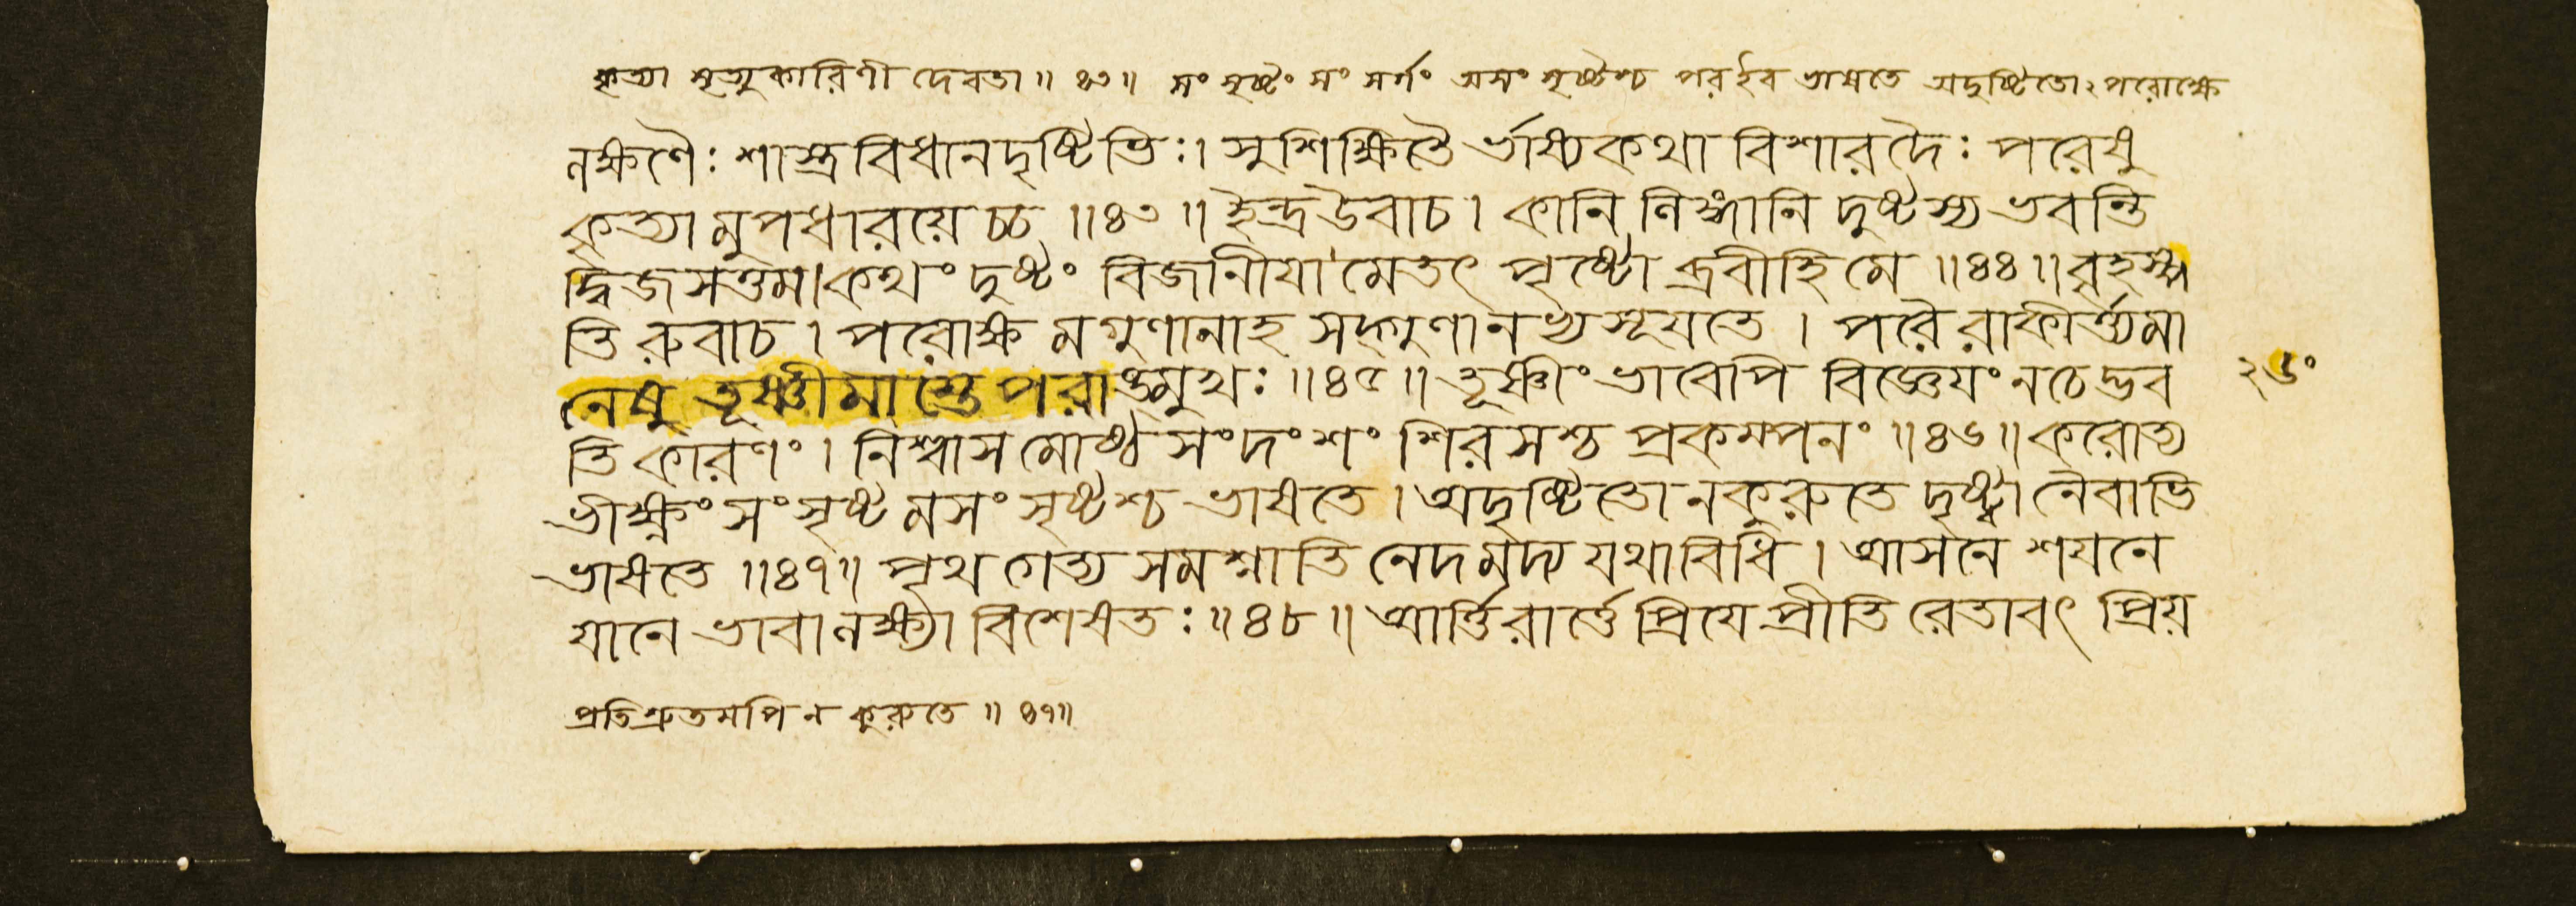 কৃত্যা মৃত্যুকারিণী দেবতা ॥ ৪৩ ॥ সং সৃষ্টং সং সর্গং অসং সৃষ্টশ্চ পরইব ভাষতে অদৃষ্টিতোঽপরোক্ষে
নক্ষণৈঃ শাস্ত্রবিধানদৃষ্টিভিঃ। সুশিক্ষিতৈ র্ভাষ্যকথা বিশারদৈঃ পরেষু
কৃত্যা মুপধারয়েচচ ॥৪৩॥ ইন্দ্রউবাচ। কানি নিঙ্গানি দুষ্টস্য ভবন্তি
দ্বিজসত্তম।কথং দুষ্টং বিজানীযামেতৎ পৃষ্টো ব্রবীহি মে ॥৪৪॥ বৃহস্প
তি রুবাচ। পরোক্ষ মগুণানাহ সদ্গুণানভ্যসূযতে। পরৈ রাকীর্ত্ত্যমা
নেষু তূষ্ণীমাস্তে পরাঙমুখঃ ॥৪৫॥ তূষ্ণীংভাবেপি বিজ্ঞেযং নচেদ্ভব
তি কারণং। নিশ্বাস মোষ্ঠ সংদংশং শিরসশ্চ প্রকম্পনং ॥৪৬॥ করোত্য
ভীক্ষ্ণং সংসৃষ্ট মসং সৃষ্টশ্চ ভাষতে। অদৃষ্টিতো নকুরুতে দৃষ্ট্বা নৈবাভি
ভাষতে ॥৪৭॥ পৃথগেত্য সমশ্নাতি নেদমদ্য যথাবিধি। আসনে শযনে
যানে ভাবানক্ষ্যা বিশেষতঃ ॥৪৮॥ আর্ত্তিরার্ত্তে প্রিযে প্রীতি রেতাবৎ প্রিয়
২৬০
প্রতিশ্রুতমপি ন কুরুতে ॥ ৪৭॥